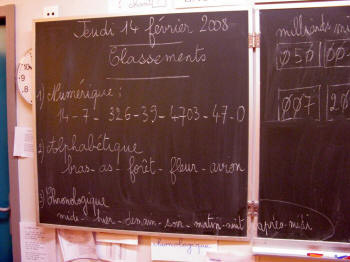 Jeudi 14 février 2008
Classements
1) Numérique :
14 - 7 - 326 - 39 - 4703 - 47 - 0
2) Alphabétique
bras - as - forêt - fleur - avion
3) Chronologique
midi - hier - demain - soir - matin - nuit - après-midi
milliards
050
007
chronologique